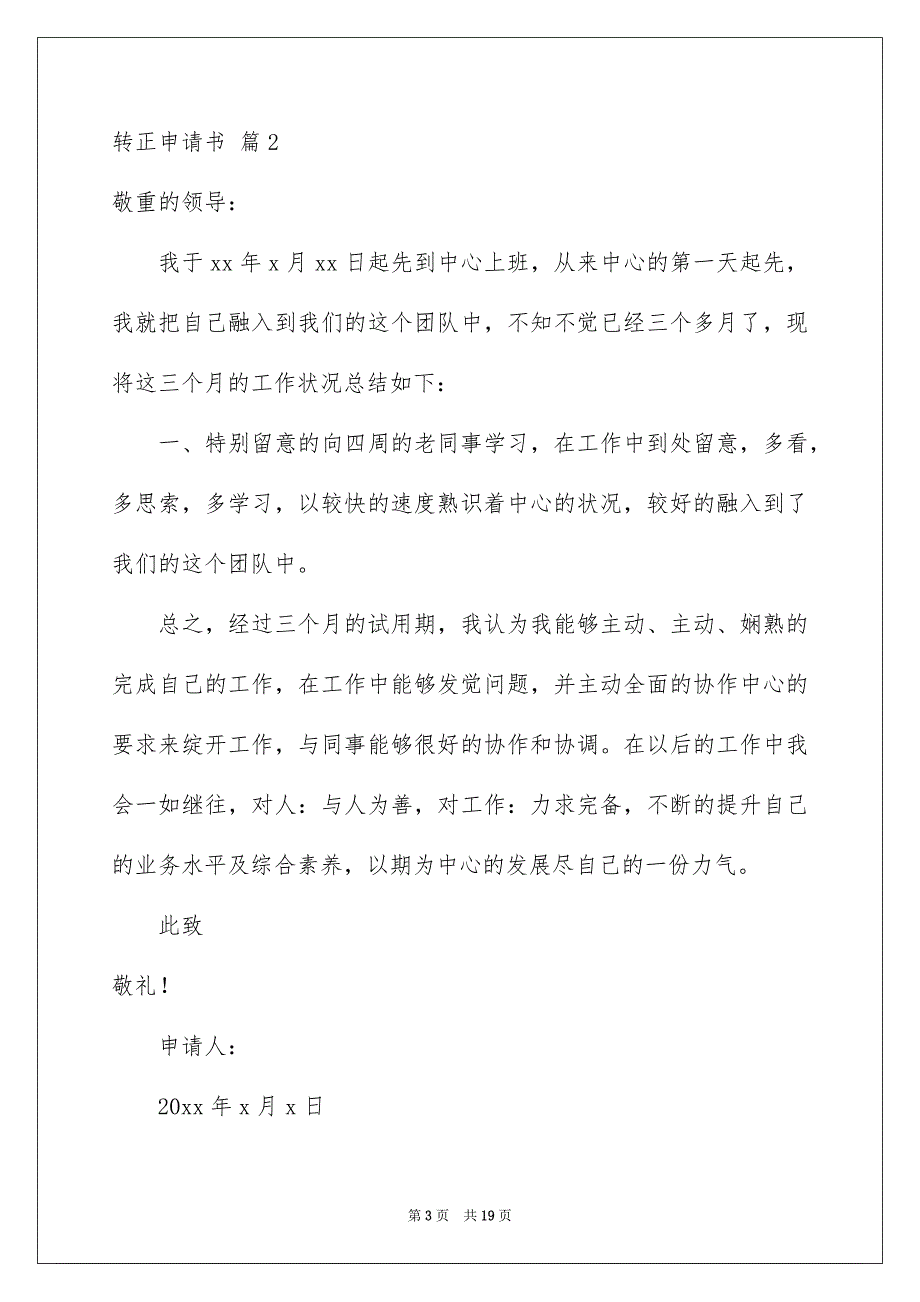 转正申请书 篇2
敬重的领导：
我于 xx 年 x 月 xx 日起先到中心上班，从来中心的第一天起先，
我就把自己融入到我们的这个团队中，不知不觉已经三个多月了，现
将这三个月的工作状况总结如下：
一、特别留意的向四周的老同事学习，在工作中到处留意，多看，
多思索，多学习，以较快的速度熟识着中心的状况，较好的融入到了
我们的这个团队中。
总之，经过三个月的试用期，我认为我能够主动、主动、娴熟的
完成自己的工作，在工作中能够发觉问题，并主动全面的协作中心的
要求来绽开工作，与同事能够很好的协作和协调。在以后的工作中我
会一如继往，对人：与人为善，对工作：力求完备，不断的提升自己
的业务水平及综合素养，以期为中心的发展尽自己的一份力气。
此致
敬礼！
申请人：
20xx 年 x 月 x 日
第 3 页 共 19 页